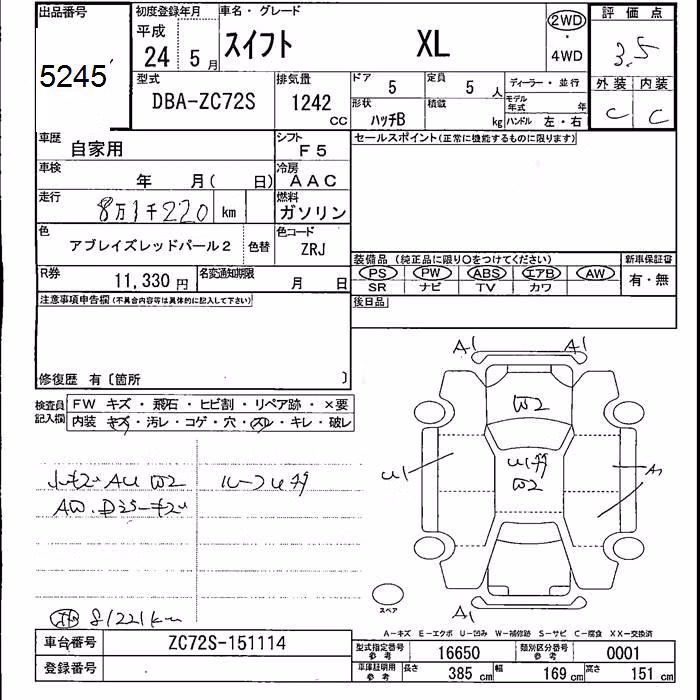 出品番号 初度登録年月 車名・グレード 評価点
5245
平成 24 5月 スイフト XL 2WD・4WD 3.5
型式 排気量 ドア 定員 ディーラー・並行 外装 内装
DBA-ZC72S 1242 CC 5 5 人 モデル年式 年 C C
形状 ハッチB 積載 kg ハンドル 左・右
車歴 自家用 シフト F5 セールスポイント(正常に機能するものに限ります)
車検 年 月( 日) 冷房 AAC
走行 8万1千220 km 燃料 ガソリン
色 アブレイズレッドパール2 色替 色コード ZRJ
装備品 (純正品に限り○をつけてください) 新車保証書
R券 11,330円 名変通知期限 月 日 PS PW ABS エアB AW 有・無
SR ナビ TV カワ
注意事項申告欄(不具合内容等は具体的に記入して下さい) 後日品
修復歴 有〔箇所 〕
検査員記入欄 FW キズ・飛石・ヒビ割・リペア跡・×要
内装 キズ・汚レ・コゲ・穴・スレ・キレ・破レ
A1 A1
W2
U1 W2
U1 A1
A1
ルーフ
AW
81221km
スペア
A-キズ E-エクボ U-凹み W-補修跡 S-サビ C-腐食 XX-交換済
車台番号 ZC72S-151114 型式指定番号 参考 16650 類別区分番号 参考 0001
登録番号 車庫証明用 参考 長さ 385 cm 幅 169 cm 高さ 151 cm